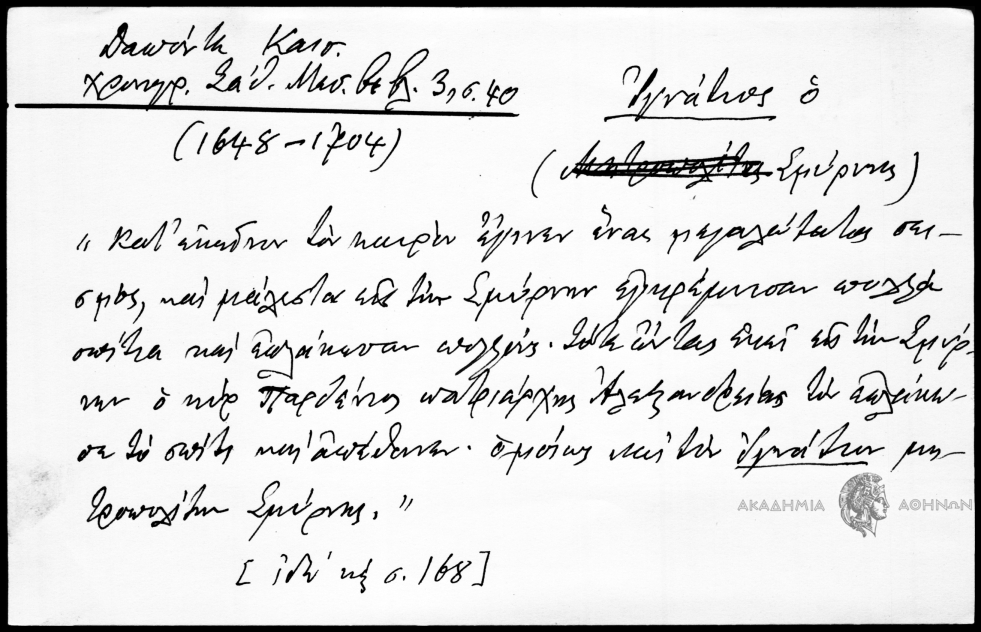 Δαπόντε Καισ.
χρονογρ. Σάθ. Μεσ. βιβλ. 3, σ. 40
(1648-1704)
Ἰγνάτιος ὁ
(Μητροπολίτης Σμύρνης)
"Κατ' ἐκεῖνον τὸν καιρὸν ἔγινεν ἕνας μεγαλώτατος σει-
σμός, καὶ μάλιστα εἰς τὴν Σμύρνην ἐγκρέμνισαν πολλὰ
σπίτια καὶ ἐπλάκωσαν πολλούς. τότε ὄντας ἐκεῖ εἰς τὴν Σμύρ-
νην ὁ κὺρ Παρθένιος πατριάρχης Ἀλεξανδρείας τὸν ἐπλάκω-
σε τὸ σπίτι καὶ ἀπέθανεν. ὁμοίως καὶ τὸν Ἰγνάτιον μη-
τροπολίτην Σμύρνης."
[ἰδὲ κ σ. 168]
ΑΚΑΔΗΜΙΑ ΑΘΗΝΩΝ